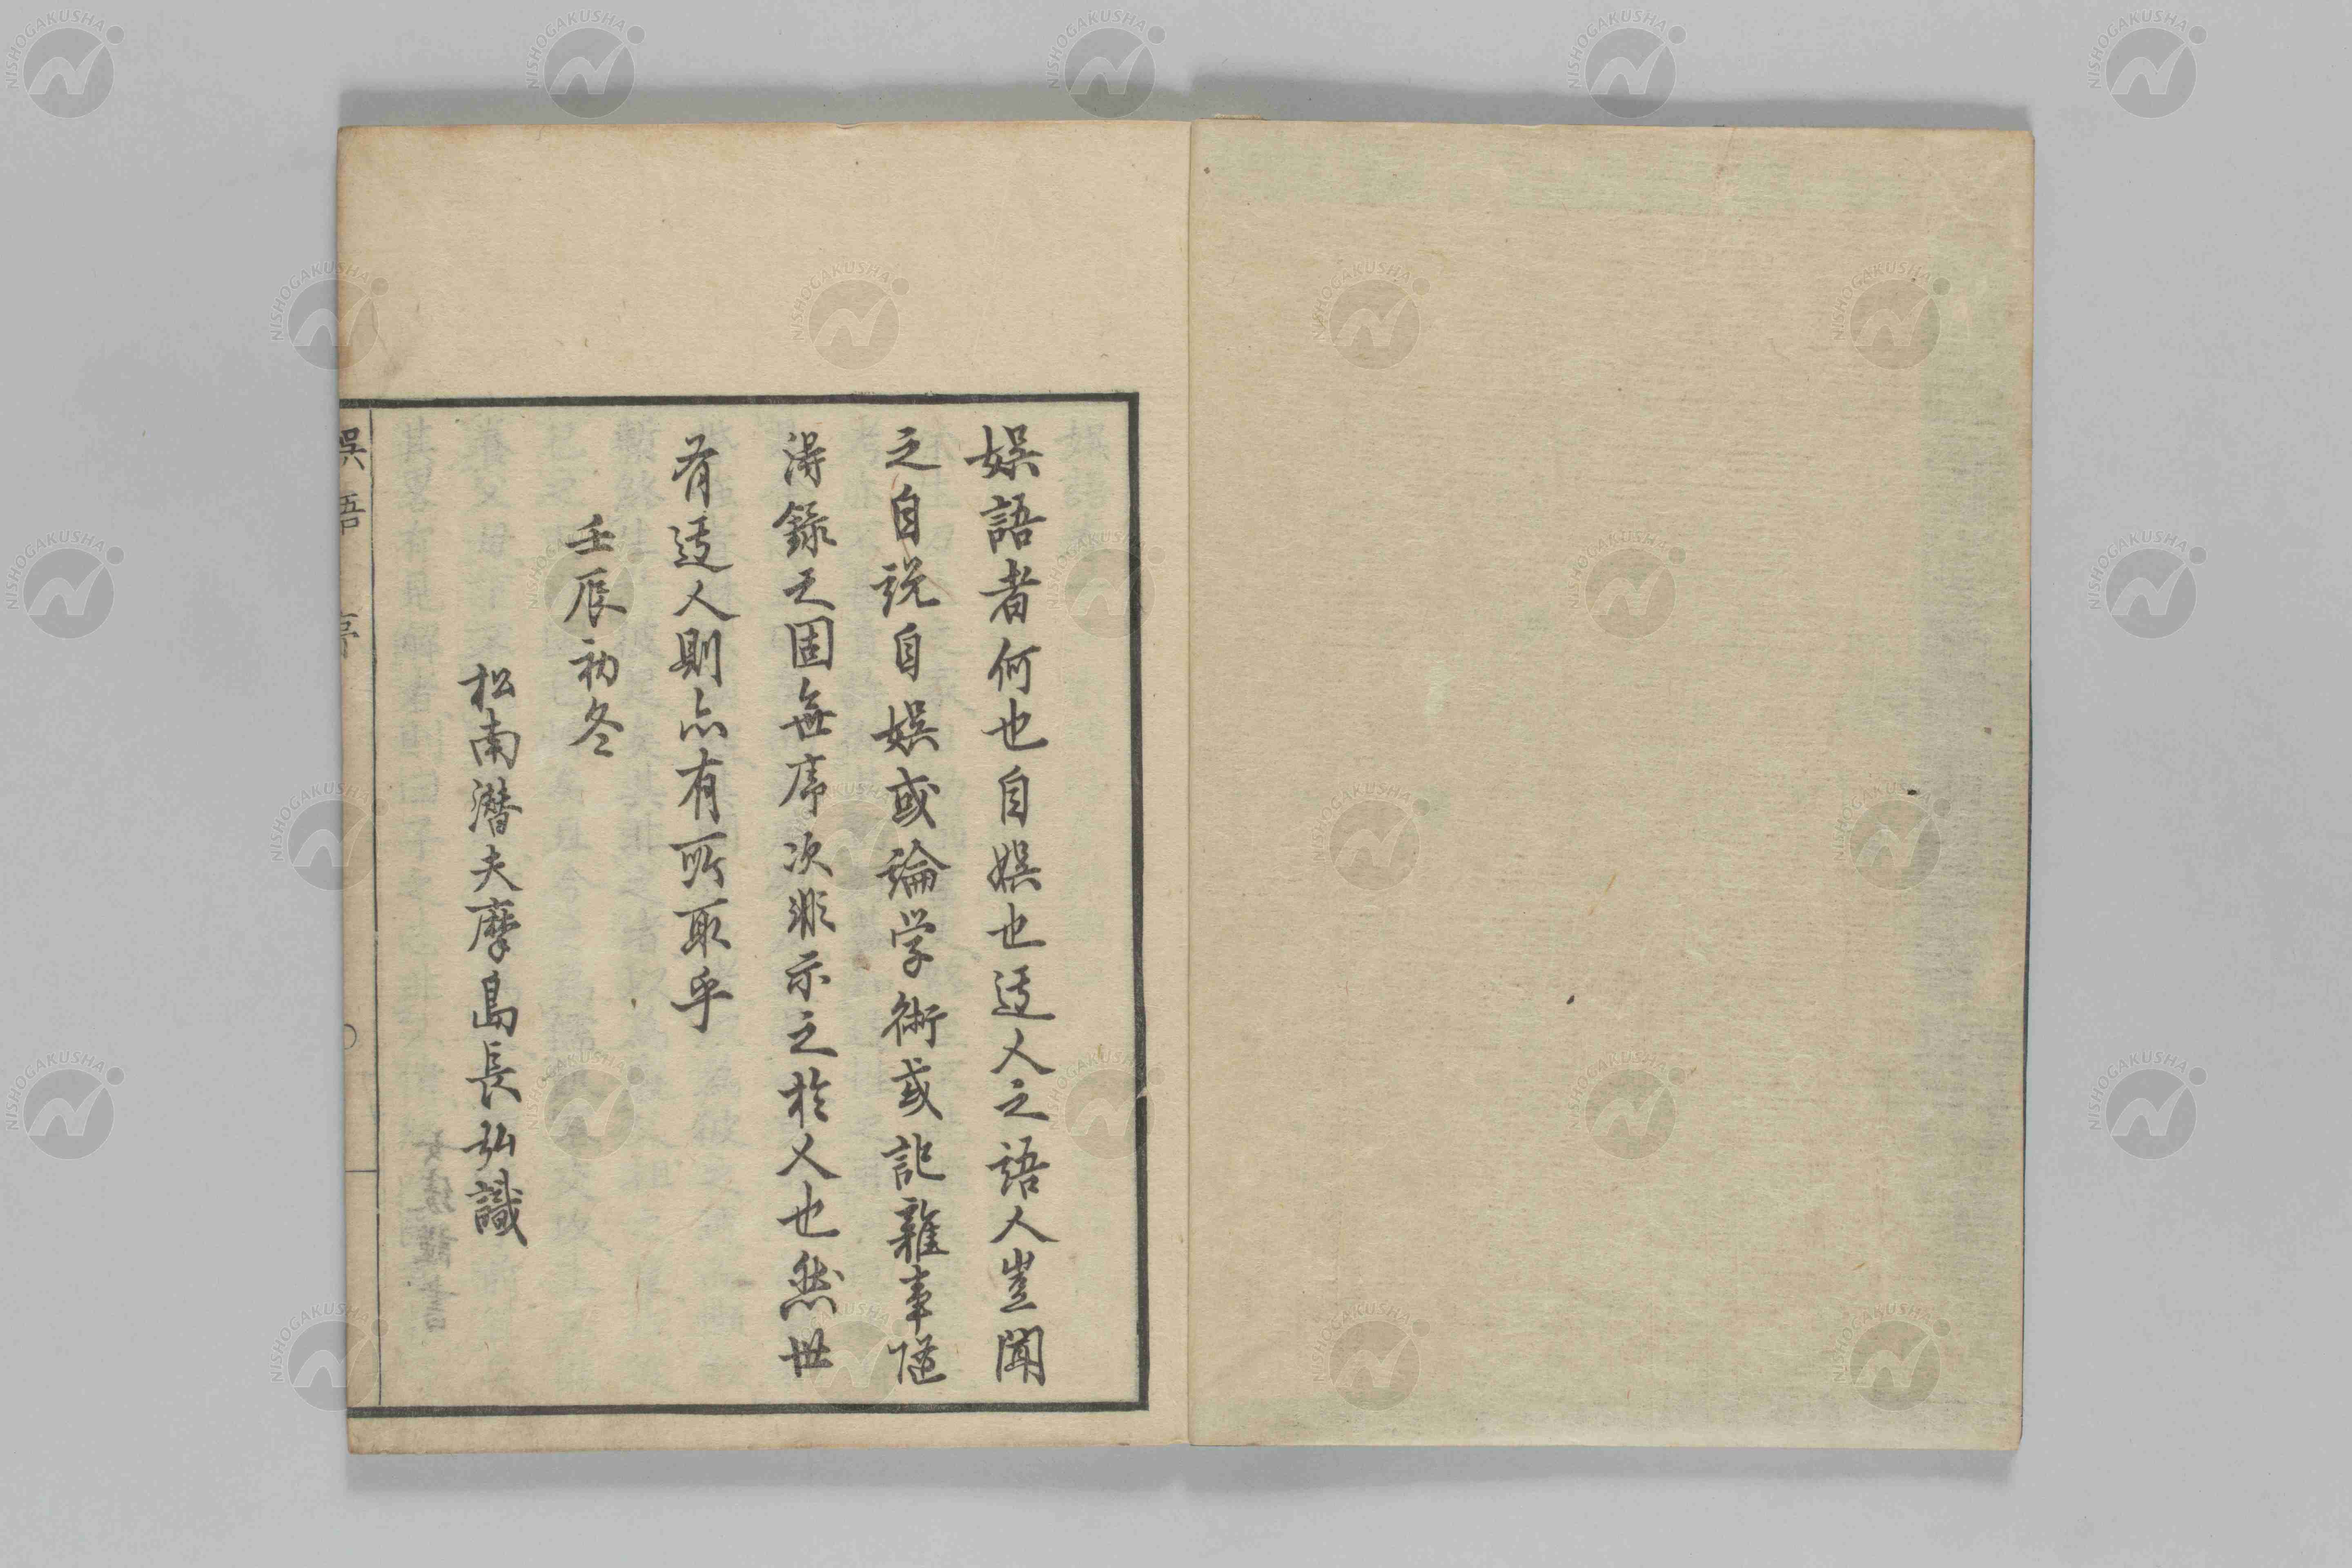 娯語者何也自娯也迂人之語人豈聞
之自説自娯或論学術或記雜事随
得録之固無序次非示之於人也然世
有迂人則亦有所取乎
壬辰初冬
松南潜夫摩島長弘識
娯語 序